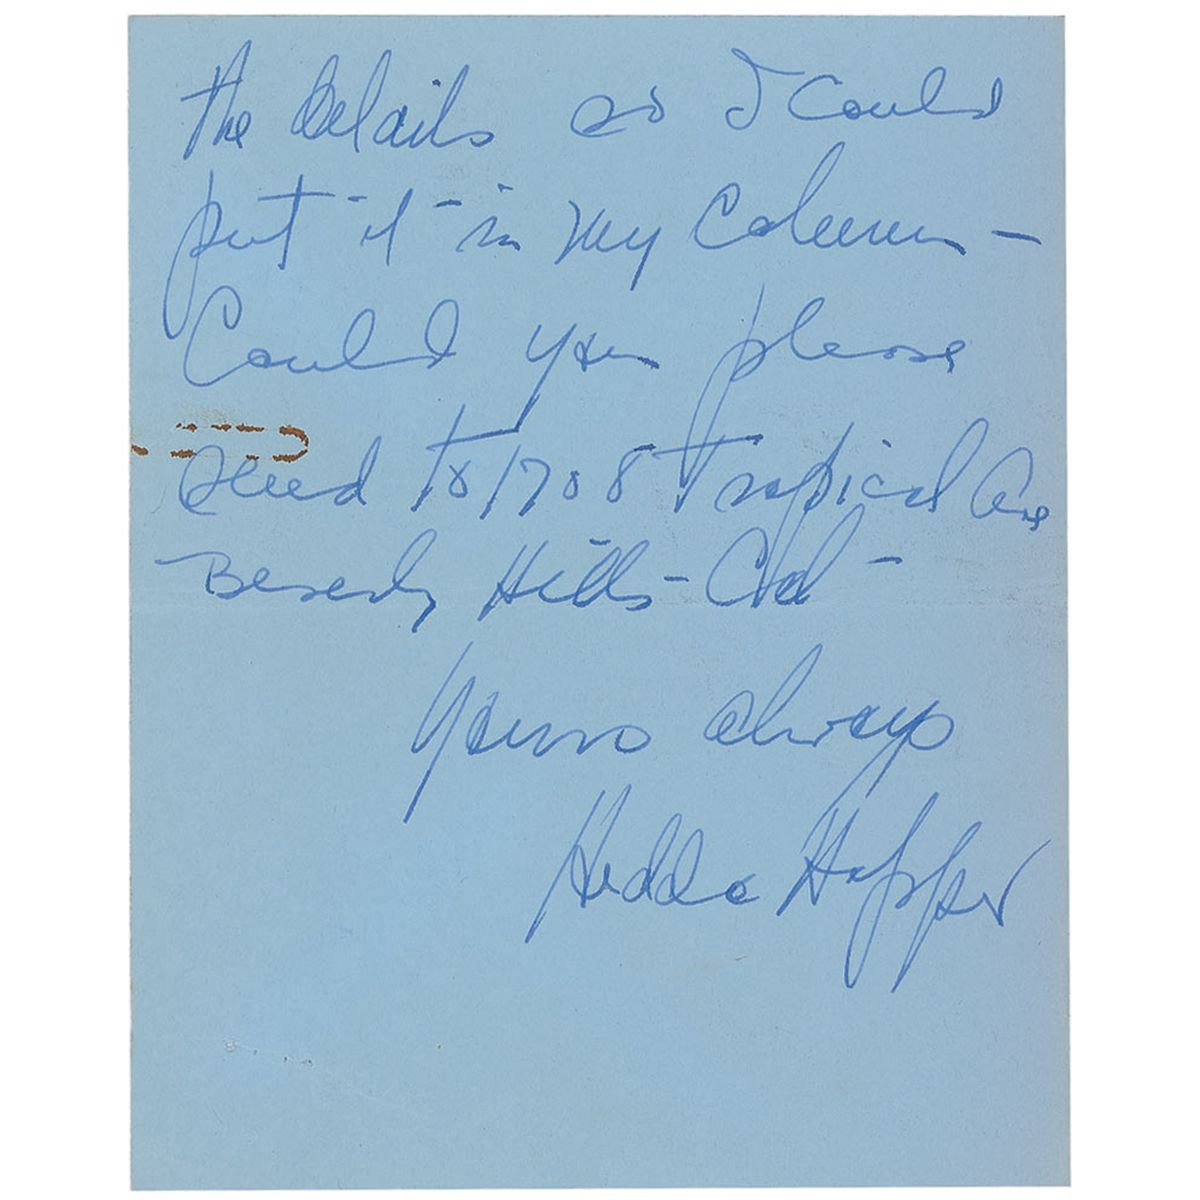 the details so I could
put it in my Column –
Could you please
send to 1708 Tropical Ave
Beverly Hills – Cal –
Yours always
Hedda Hopper